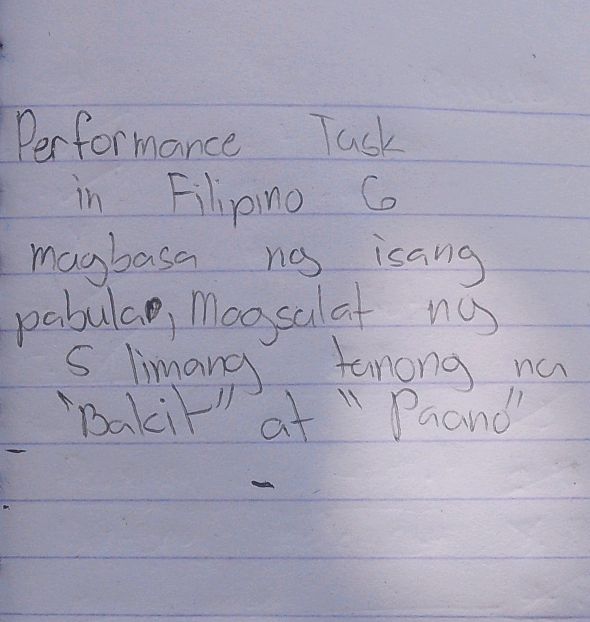 Performance Task
in Filipino 6
magbasa ng isang
pabula, Magsulat ng
5 limang tanong na
"Bakit" at "Paano"